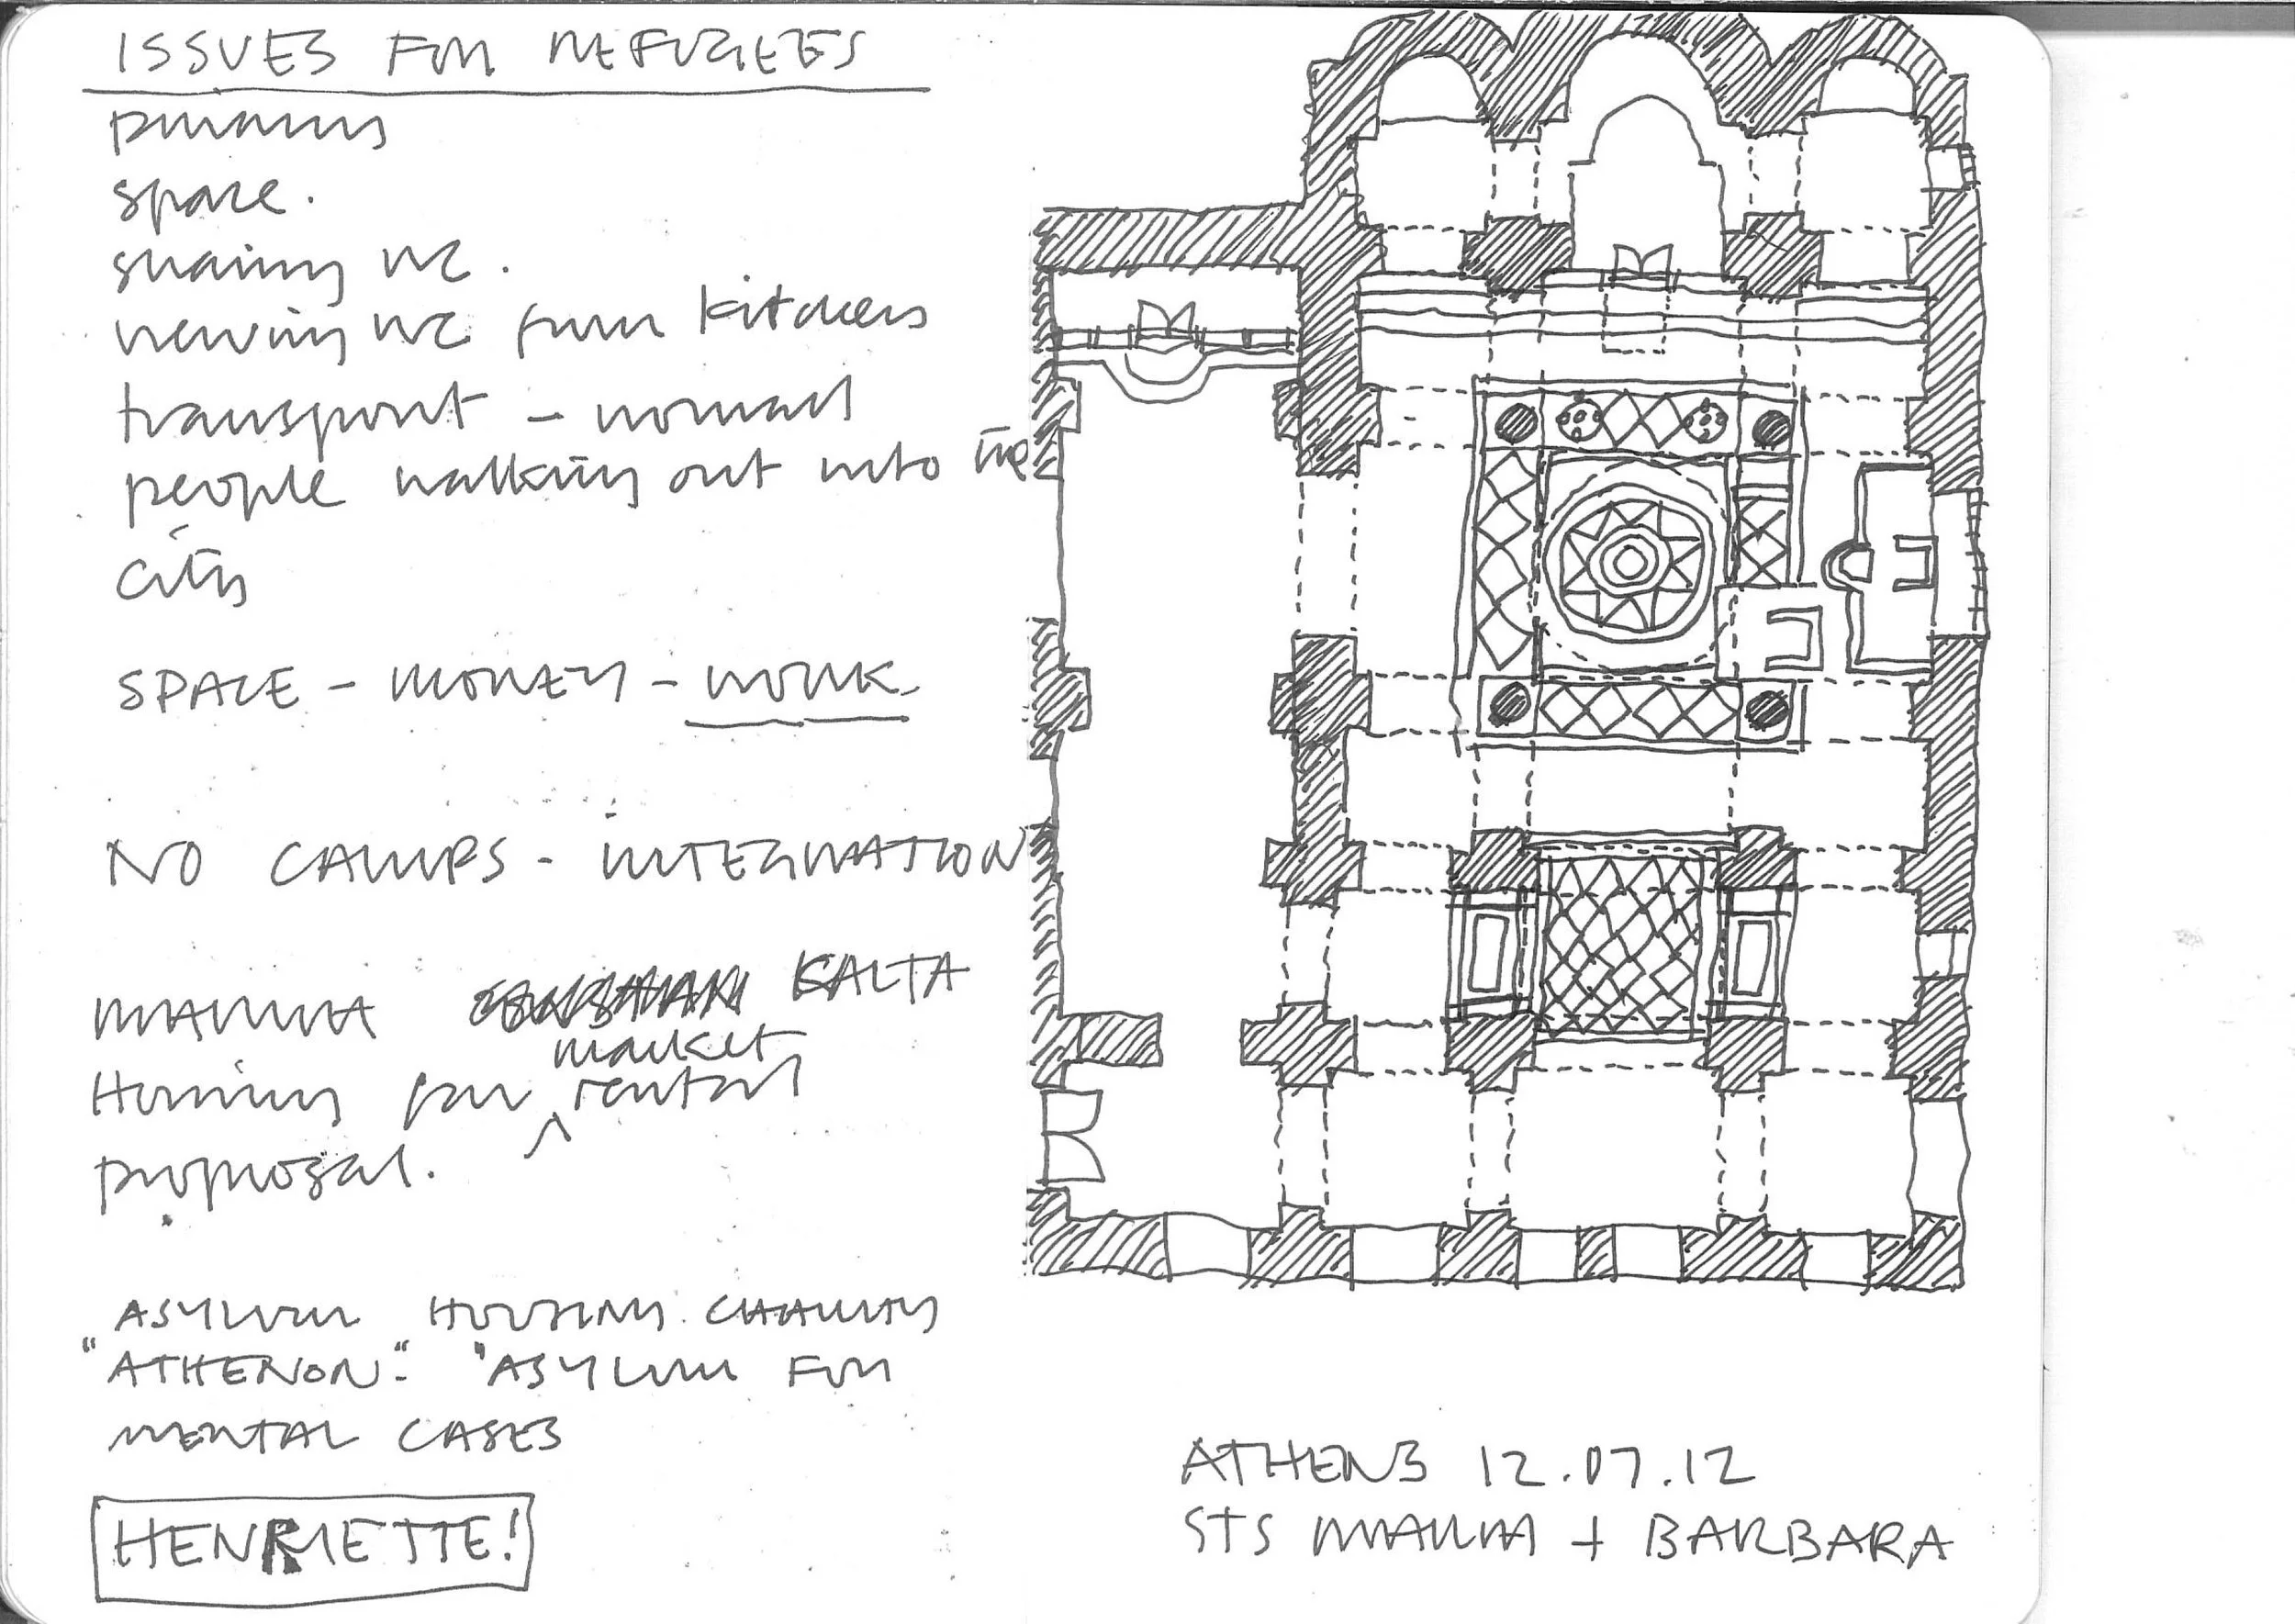 ISSUES FOR REFUGEES
privacy
space.
sharing WC.
viewing WC from kitchens
transport - nomad
people walking out into the
city
SPACE - MONEY - WORK
NO CAMPS - INTEGRATION
MARINA KALTA
Housing for market rental
proposal.
ASYLUM HOUSING CHARITY
"ATHENON"- "ASYLUM FOR
MENTAL CASES
HENRIETTE!
ATHENS 12.07.12
STS MARINA + BARBARA